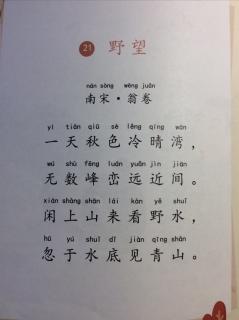 21 野望
nán sòng wēng juǎn
南宋·翁卷
yì tiān qiū sè lěng qíng wān
一天秋色冷晴湾，
wú shù fēng luán yuǎn jìn jiān
无数峰峦远近间。
xián shàng shān lái kàn yě shuǐ
闲上山来看野水，
hū yú shuǐ dǐ jiàn qīng shān
忽于水底见青山。